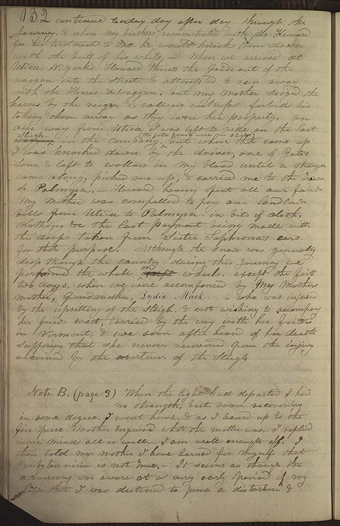 132
continue to day day after day through the
journey, & when my brother remonstrated with Mr Howard
for his treatment to me, he would knock him down
with the butt of his whip,— When we arrived at
Utica N. York Howard threw the goods out of the
waggon into the street & attempted to run away
with the Horses & waggon, but my mother seized the
horses by the reign, & calling witnesses forbid his
taking them away as they were her property. on
our way from Utica I was left to ride in the last
Sleigh in the company, but when that came up
I was knocked down by the driver, one of Gates
Sons & left to wallow in my blood until a stranger
came along, picked me up, & carried me to the Town
of Palmyra.— Howard having spent all our funds
My Mother was compelled to pay our landlords
bills from Utica to Palmyra in bits of cloth,
clothing &c the last payment being made with
the drops taken from Sister Sophronia's ears
for that purpose. Although the snow was generally
deep through the country during this journey we
performed the whole on wheels, except the first
two days, when we were accompanied by My Mother's
mother, Grandmother Lydia Mack who was injured
by the upsetting of the Sleigh, & not wishing to accompany
her friends west, tarried by the way with her friends
in Vermont, & we soon after heard of her death
supposing that she never recovered from the injury
received by the overturn of the Sleigh
Note B. (page 3) When the light had departed I had
no strength, but soon recovering
in some degree, I went home. & as I leaned up to the
fire piece. Mother enquired what the matter was. I replied
never mind all is well.— I am well enough off. I
then told my mother I have learned for myself that
Presbyterianism is not true,— It seems as though the
adversary was aware at a very early period of my
life that I was destined to prove a disturber &